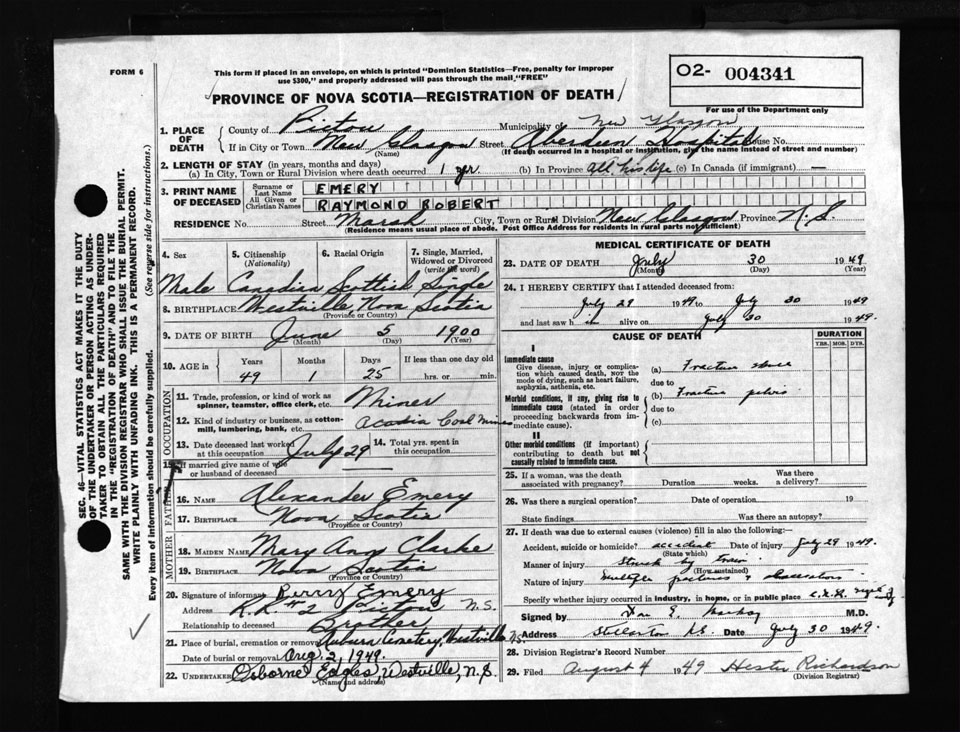 FORM 6
This form if placed in an envelope, on which is printed "Dominion Statistics—Free, penalty for improper
use $300," and properly addressed will pass through the mail, "FREE"
O2- 004341
For use of the Department only
PROVINCE OF NOVA SCOTIA—REGISTRATION OF DEATH
1. PLACE OF DEATH
County of Pictou Municipality of New Glasgow
If in City or Town New Glasgow Street Aberdeen Hospital House No.
(Name) (If death occurred in a hospital or institution, give the name instead of street and number)
2. LENGTH OF STAY (in years, months and days)
(a) In City, Town or Rural Division where death occurred 1 yr. (b) In Province All his life (c) In Canada (if immigrant) —
3. PRINT NAME OF DECEASED
Surname or Last Name EMERY
All Given or Christian Names RAYMOND ROBERT
RESIDENCE No. Street Marsh City, Town or Rural Division New Glasgow Province N.S.
(Residence means usual place of abode. Post Office Address for residents in rural parts not sufficient)
4. Sex 5. Citizenship (Nationality) 6. Racial Origin 7. Single, Married, Widowed or Divorced (write the word)
Male Canadian Scottish Single
8. BIRTHPLACE Westville Nova Scotia
(Province or Country)
9. DATE OF BIRTH June 5 1900
(Month) (Day) (Year)
10. AGE in Years Months Days If less than one day old
49 1 25 hrs. or min.
OCCUPATION
11. Trade, profession, or kind of work as spinner, teamster, office clerk, etc. Miner
12. Kind of industry or business, as cotton mill, lumbering, bank, etc. Acadia Coal Mines
13. Date deceased last worked at this occupation July 29 14. Total yrs. spent in this occupation
15. If married give name of wife or husband of deceased
FATHER
16. NAME Alexander Emery
17. BIRTHPLACE Nova Scotia
(Province or Country)
MOTHER
18. MAIDEN NAME Mary Ann Clarke
19. BIRTHPLACE Nova Scotia
(Province or Country)
20. Signature of informant Emery
Address R.R. #2 Pictou N.S.
Relationship to deceased Brother
21. Place of burial, cremation or removal Auburn Cemetery, Westville N.S.
Date of burial or removal Aug. 2, 1949.
22. UNDERTAKER Osborne Eagles, Westville, N.S.
(Name and address)
MEDICAL CERTIFICATE OF DEATH
23. DATE OF DEATH July 30 1949
(Month) (Day) (Year)
24. I HEREBY CERTIFY that I attended deceased from:
July 29 1949 to July 30 1949
and last saw h im alive on July 30 1949.
CAUSE OF DEATH DURATION
YRS. MOS. DYS.
I
Immediate cause
Give disease, injury or complication which caused death, NOT the mode of dying, such as heart failure, asphyxia, asthenia, etc.
(a) Fracture
due to
Morbid conditions, if any, giving rise to immediate cause (stated in order proceeding backwards from immediate cause).
(b) Fracture pelvis
due to
(c)
II
Other morbid conditions (if important) contributing to death but not causally related to immediate cause.
25. If a woman, was the death associated with pregnancy? Duration weeks. Was there a delivery?
26. Was there a surgical operation? Date of operation 19
State findings Was there an autopsy?
27. If death was due to external causes (violence) fill in also the following:—
Accident, suicide or homicide? accident Date of injury July 29 1949.
(State which)
Manner of injury Struck by train
(How sustained)
Nature of injury multiple fractures &
Specify whether injury occurred in industry, in home, or in public place
Signed by M.D.
Address Stellarton N.S. Date July 30 1949.
28. Division Registrar's Record Number
29. Filed August 4 1949 Hester Richardson
(Division Registrar)
SEC. 46—VITAL STATISTICS ACT MAKES IT THE DUTY
OF THE UNDERTAKER OR PERSON ACTING AS UNDER-
TAKER TO OBTAIN ALL THE PARTICULARS REQUIRED
IN THE "REGISTRATION OF DEATH" AND TO FILE THE
SAME WITH THE DIVISION REGISTRAR WHO SHALL ISSUE THE BURIAL PERMIT.
WRITE PLAINLY WITH UNFADING INK. THIS IS A PERMANENT RECORD.
Every item of information should be carefully supplied. (See reverse side for instructions.)